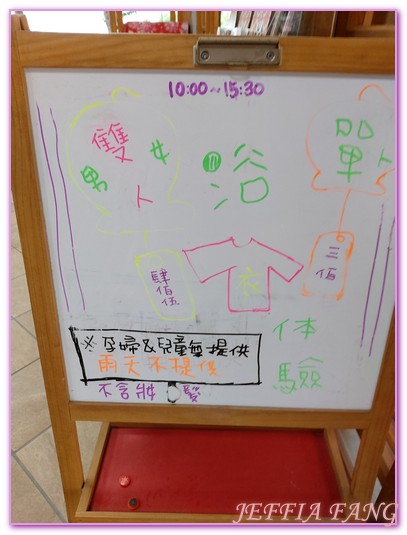 10:00~15:30
雙人
男 女
浴衣
体驗
單人
肆佰伍
三佰
※孕婦&兒童無提供
雨天不提供
不含妝髮
JEFFIA FANG